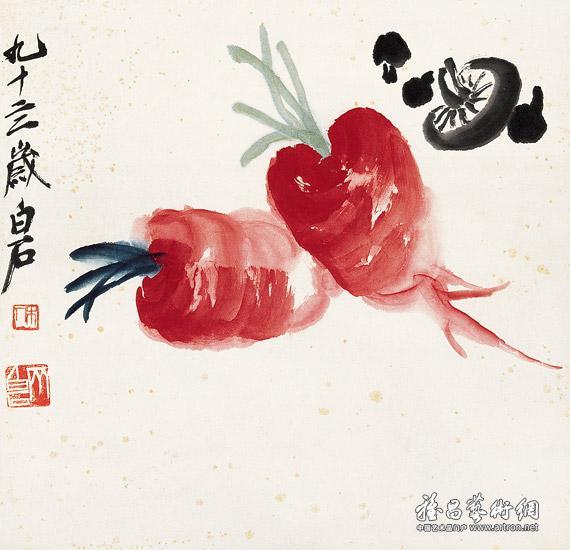 九十三歲白石
雅昌藝術網
中国艺术品门户 www.artron.net